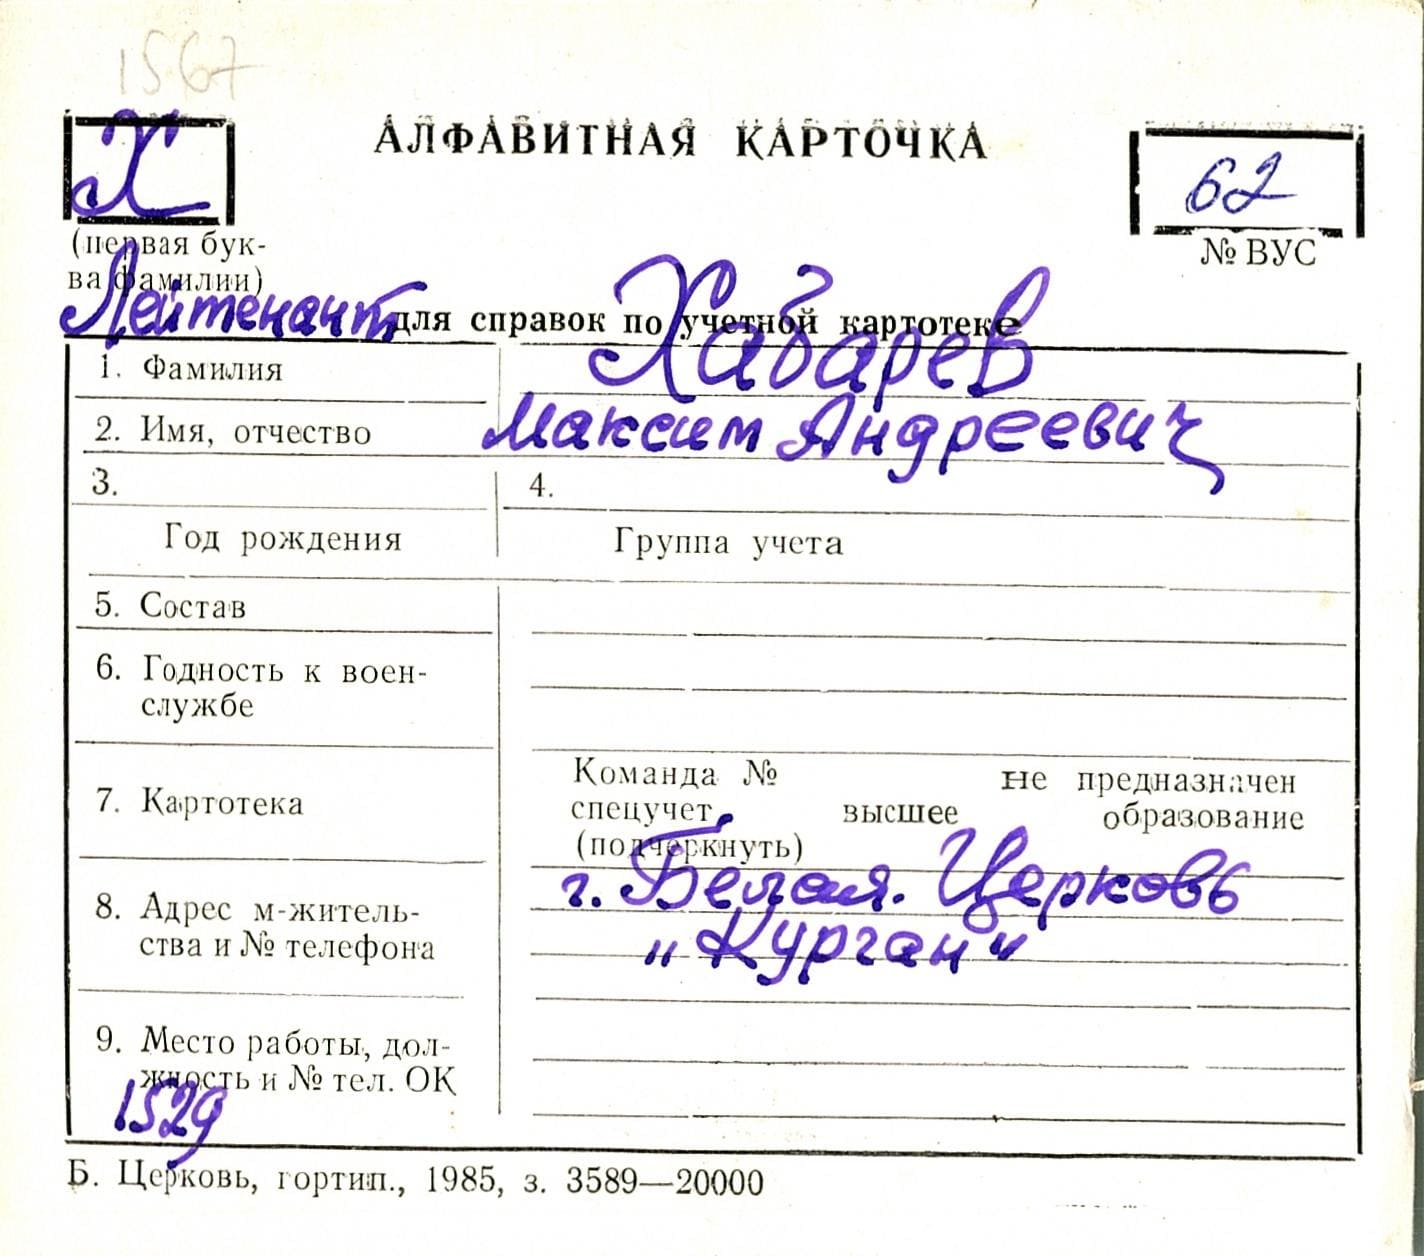 1567
Х
АЛФАВИТНАЯ КАРТОЧКА
62
(первая бук-
ва фамилии)
№ ВУС
Лейтенант
для справок по учетной картотеке
1. Фамилия Хабарев
2. Имя, отчество Максим Андреевич
3. 4.
Год рождения Группа учета
5. Состав
6. Годность к воен-
службе
7. Картотека
Команда № не предназначен
спецучет, высшее образование
(подчеркнуть)
8. Адрес м-житель-
ства и № телефона
г. Белая. Церковь
„Курган“
9. Место работы, дол-
жность и № тел. ОК
1529
Б. Церковь, гортип., 1985, з. 3589—20000